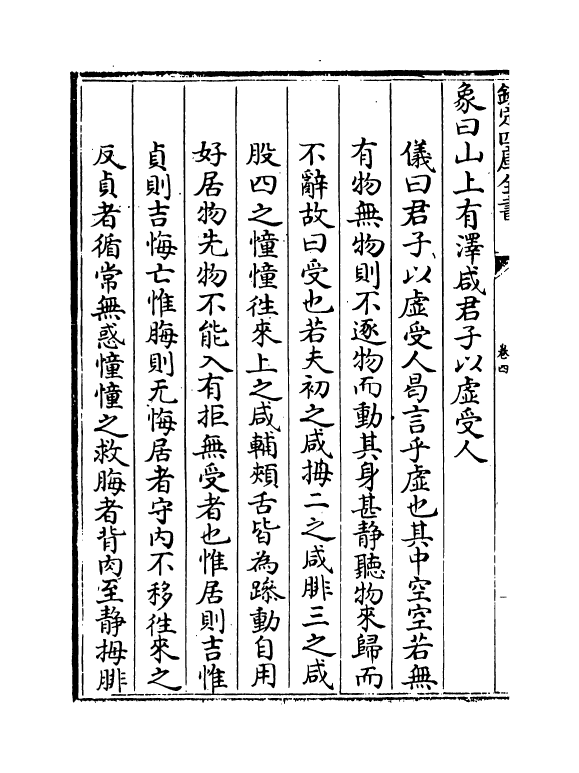 欽定四庫全書
卷四
象曰山上有澤咸君子以虛受人
儀曰君子以虛受人曷言乎虛也其中空空若無
有物無物則不逐物而動其身甚静聽物來歸而
不辭故曰受也若夫初之咸拇二之咸腓三之咸
股四之憧憧往來上之咸輔頰舌皆為躁動自用
好居物先物不能入有拒無受者也惟居則吉惟
貞則吉悔亡惟脢則无悔居者守内不移往來之
反貞者循常無惑憧憧之救脢者背肉至静拇腓